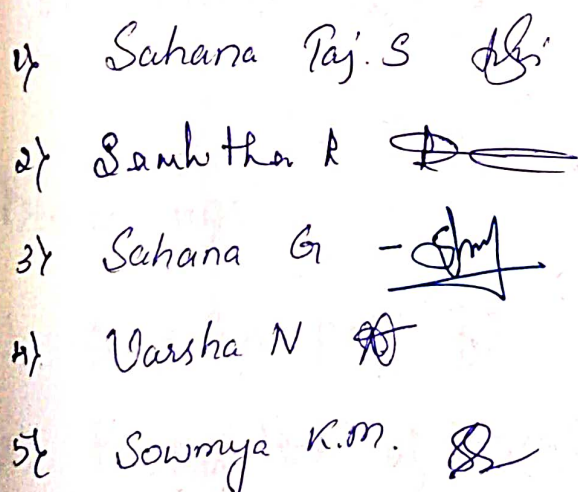 1) Sahana Taj. S
2) Samhitha R
3) Sahana G -
4) Varsha N
5) Sowmya K.M.